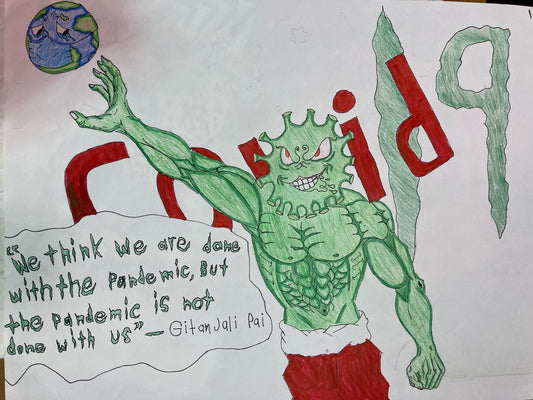 covid 19
"We think we are done
with the Pandemic, But
the Pandemic is not
done with us" — GitanJali Pai